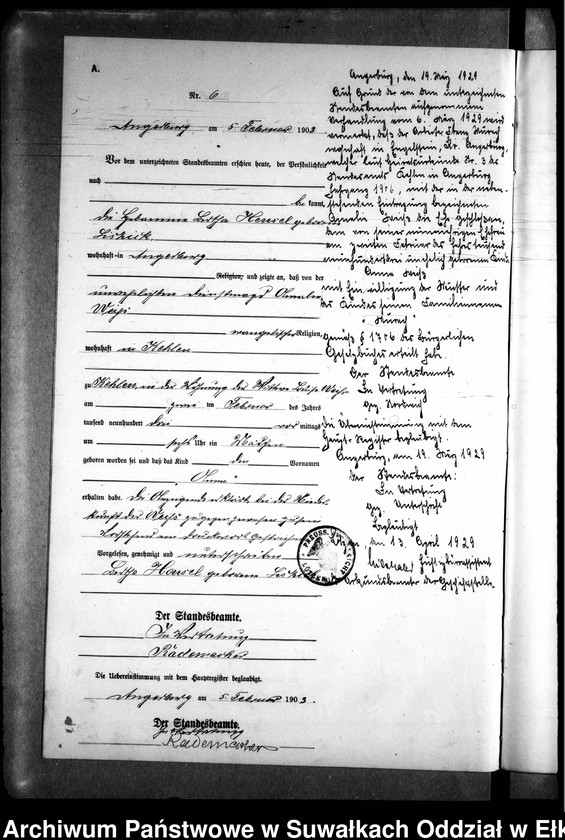 A.
Nr. 6
Angerburg am 5 Februar 1903
Vor dem unterzeichneten Standesbeamten erschien heute, der Persönlichkeit
nach
bekannt,
die Hebamme Hensel geborene
wohnhaft in Angerburg
Religion, und zeigte an, daß von der
unverehelichten Dienstmagd Amalie
Weiß
evangelischer Religion,
wohnhaft in Kehlen
zu Kehlen, in der Wohnung der Wittwe Weiß
am zwei ten Februar des Jahres
tausend neunhundert drei vor mittags
um sechs Uhr ein Mädchen
geboren worden sei und daß das Kind den Vornamen
Anna
erhalten habe. Die Anzeigende erklärt, bei der Nieder-
kunft der Weiß zugegen gewesen zu sein
Vorgelesen, genehmigt und unterschrieben
Hensel geborene
Der Standesbeamte.
In Vertretung
Rademacher
Die Uebereinstimmung mit dem Hauptregister beglaubigt.
Angerburg am 5 Februar 1903.
Der Standesbeamte.
In Vertretung
Rademacher
Angerburg, den 19. März 1929
Auf Grund der von dem unterzeichneten
Standesbeamten aufgenommenen
Verhandlung vom 6. März 1929 wird
vermerkt, daß der Arbeiter
wohnhaft in Engelstein, Kr. Angerburg,
welcher laut Heiratsurkunde Nr. 3 des
Standesamts Kehlen in Angerburg
Jahrgang 1906, mit der in der neben-
stehenden Eintragung bezeichneten
Amalie Weiß die Ehe geschlossen,
dem von seiner nunmehrigen Ehefrau
am zweiten Februar des Jahres tausend
neunhundertdrei unehelich geborenen Kinde
Anna Weiß
mit Einwilligung der Mutter und
des Kindes seinen Familiennamen
gemäß § 1706 des Bürgerlichen
Gesetzbuches erteilt hat.
Der Standesbeamte
In Vertretung
gez.
Die Übereinstimmung mit dem
Haupt-Register beglaubigt.
Angerburg, am 19. März 1929
Der Standesbeamte:
In Vertretung
gez. Unterschrift
Beglaubigt
den 13. April 1929
Justizbüroassistent
Urkundsbeamter der Geschäftsstelle
PREUSS.
Archiwum Państwowe w Suwałkach Oddział w Ełk